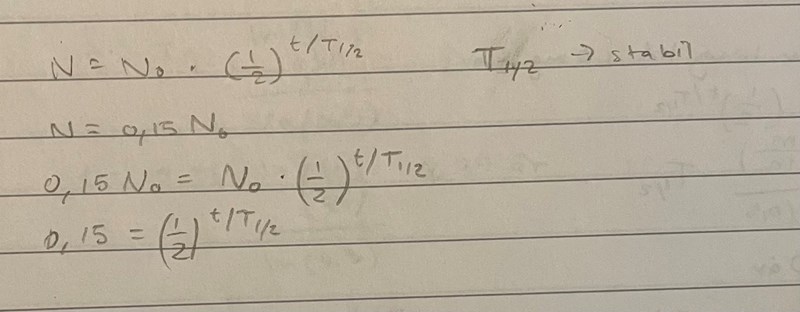 N = N₀ · (1/2)^t/T1/2 T1/2 → stabil
N = 0,15 N₀
0,15 N₀ = N₀ · (1/2)^t/T1/2
0,15 = (1/2)^t/T1/2